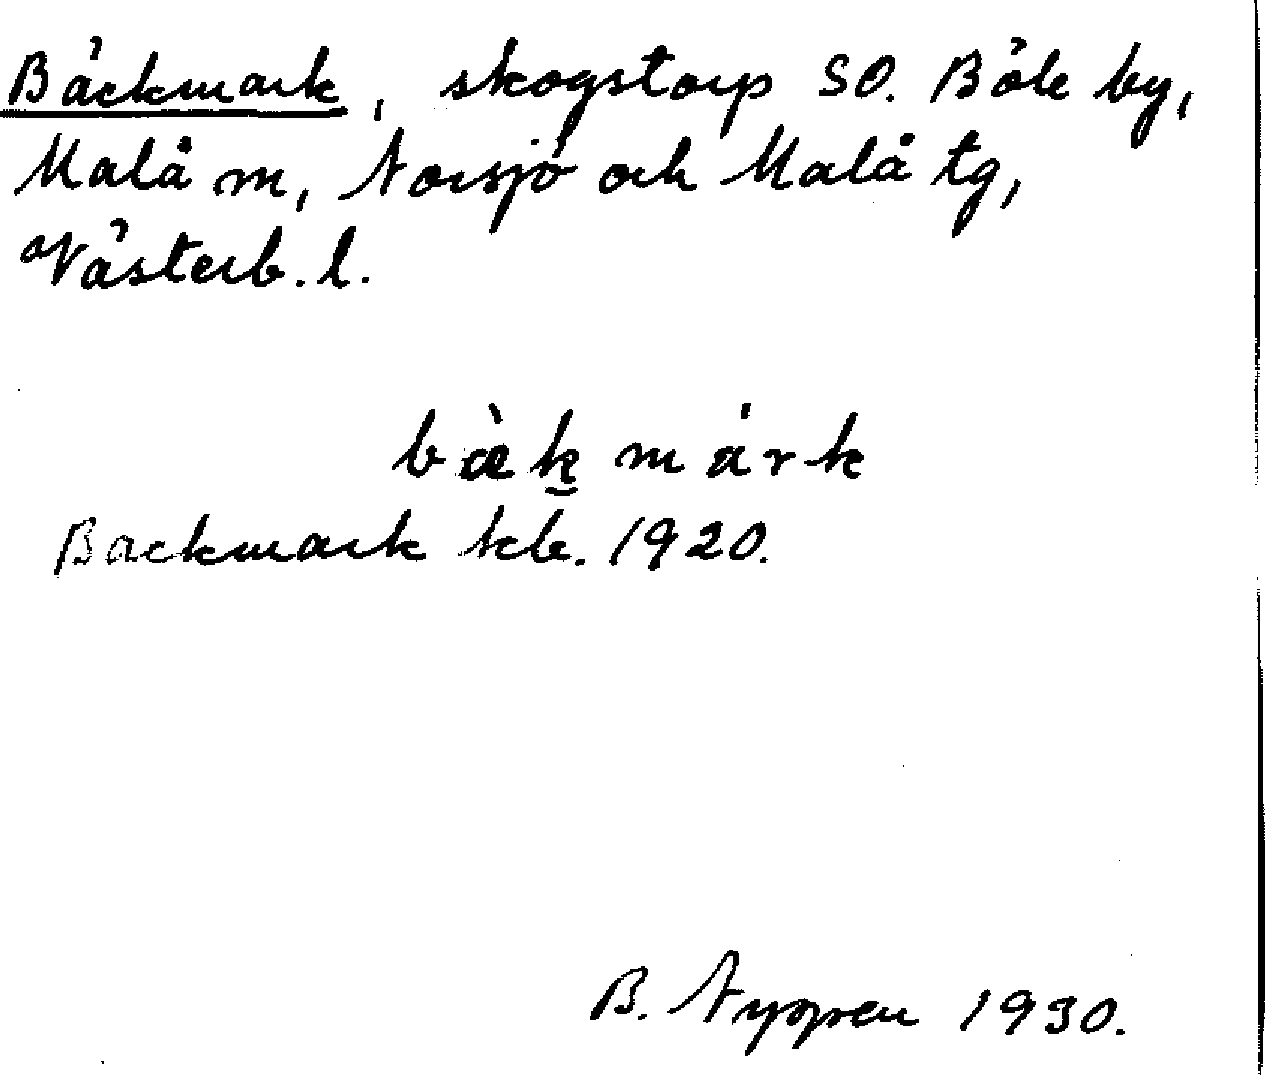 Bäckmark, skogstorp SO. Böle by,
Malå sn, Norsjö och Malå tg,
Västerb. l.
bæ̀k̯ márk
Backmark kb. 1920.
B. Nygren 1930.